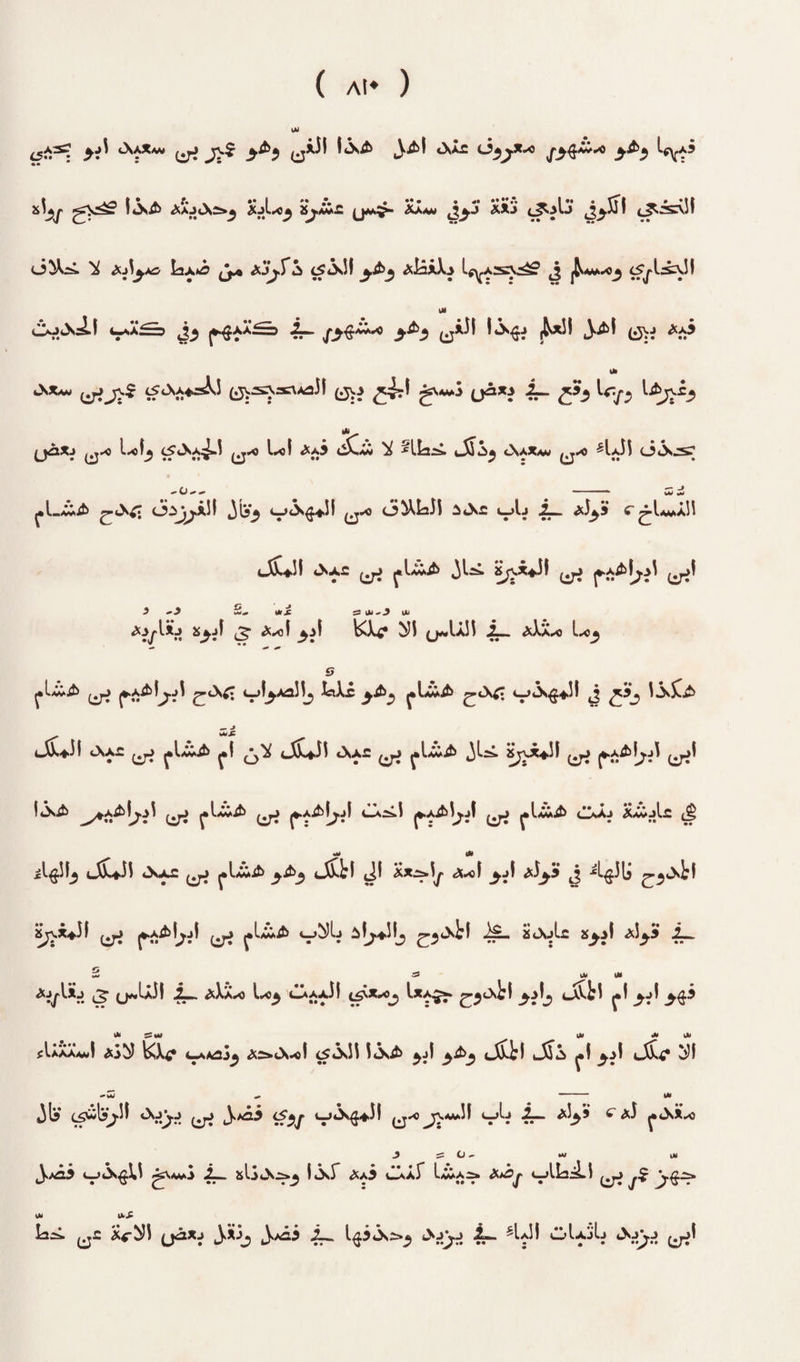 ( ٨١٠ )
فيها وهو مشهور معروف عند اهل هذا الفنّ وهو عمير بن سعيد ابو يحيى
النخعي الكوفي تابعي ثقة توفي سنة خمس عشرة وماية وحديثه هذا صحيح رواه
البخاري ومسلم في صحيحيهما بلفظه وهو الذي ذكرته من ضبط صوابه لا خلاف
فيه بين اهل العلم بهذا الفنّ وهو مشهور في كتبهم وفي كتب الحديث
وغيرها وربما وقع في بعض نسخ الجمع بين الصحيحين للحميدي عمير بن سعد
بحذف الياء من سعيد وذلك خطاء لا شكّ فيه اما من الحميدي واما من بعض
النساخ ، قوله في باب عدد الطلاق من المهذب وقال الفرزدق يمدح هشام
ابن ابراهيم بن المغيرة خال هشام بن عبد الملك
وما مثله في الناس الا مملّكًا ابو امّه حيّ ابوه يقاربه
هكذا وقع في المهذب يمدح هشام وهو غلط والصواب يمدح ابراهيم بن هشام
ابن ابراهيم بن المغيرة خال هشام بن عبد الملك لان ام هشام بن عبد الملك
هي عايشة بنت هشام بن ابراهيم اخت ابراهيم بن هشام بن ابراهيم هذا
الممدوح فالهاء في قوله ابو امه راجعة الى المملّك وهو هشام بن عبد الملك والهاء
في قوله ابوه عايدة على الممدوح والمراد بالاب هشام بن ابراهيم بن المغيرة
فهو ابو ام المملّك وابو الممدوح جميعًا ومعنى البيت وما مثله في الناس حيّ يقاربه
الا مملّك ابو ام ذلك المملّك وهو ابو هذا الذي امدحه ونصب مملّكًا لانّه استثناء
مقدم ، قوله في باب السير من المهذب روى فضل بن يزيد الرقاشي قال
جهّز عمر بن الخطاب رضه جيشًا كُنْتُ فيه كذا وجدناه في نسخ المهذب فضل
ابن يزيد باثبات الياء في يزيد وحذفها في فضل ونقل بعض الائمّة عن خط